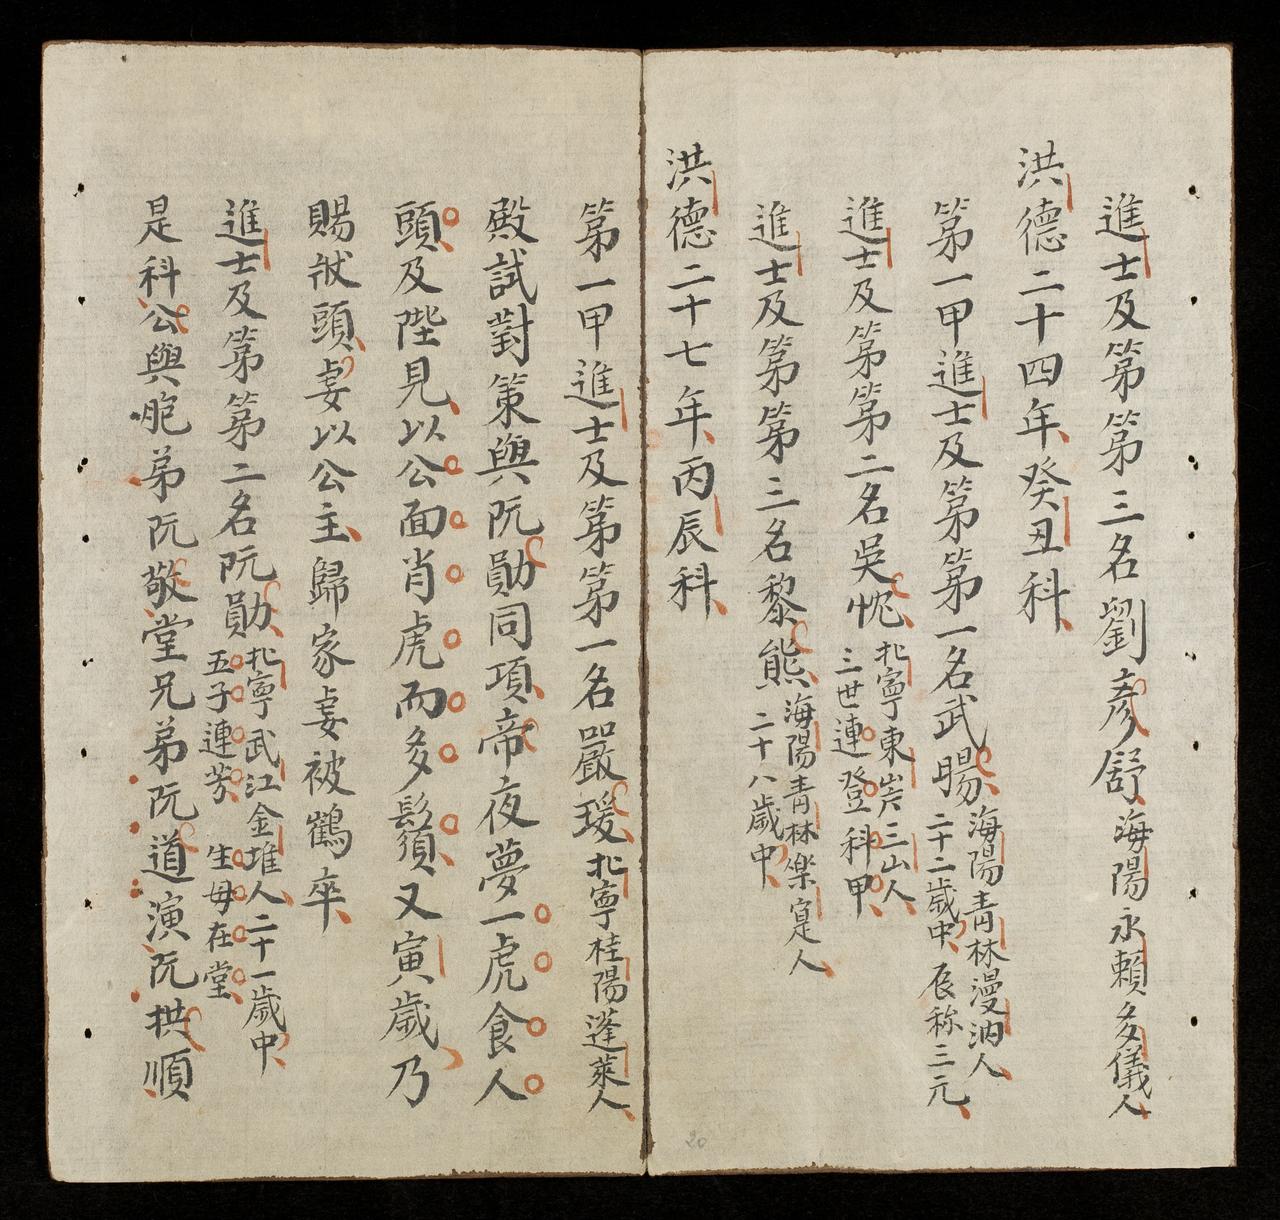 進士及第第三名劉彥舒海陽永賴多儀人
洪德二十四年癸丑科
第一甲進士及第第一名武暘海陽青林漫汭人
二十二歲中辰称三元
進士及第第二名吳忱北寧東岸三山人
三世連登科甲
進士及第第三名黎熊海陽青林樂寔人
二十八歲中
洪德二十七年丙辰科
第一甲進士及第第一名嚴瑗北寧桂陽蓬萊人
殿試對策與阮勛同項帝夜夢一虎食人
頭及陛見以公面肖虎而多鬚又寅歲乃
賜狀頭妾以公主歸家妾被鶴卒
進士及第第二名阮勛北寧武江金堆人二十一歲中
五子連芳 生母在堂
是科公與胞弟阮敬堂兄弟阮道演阮拱順
20